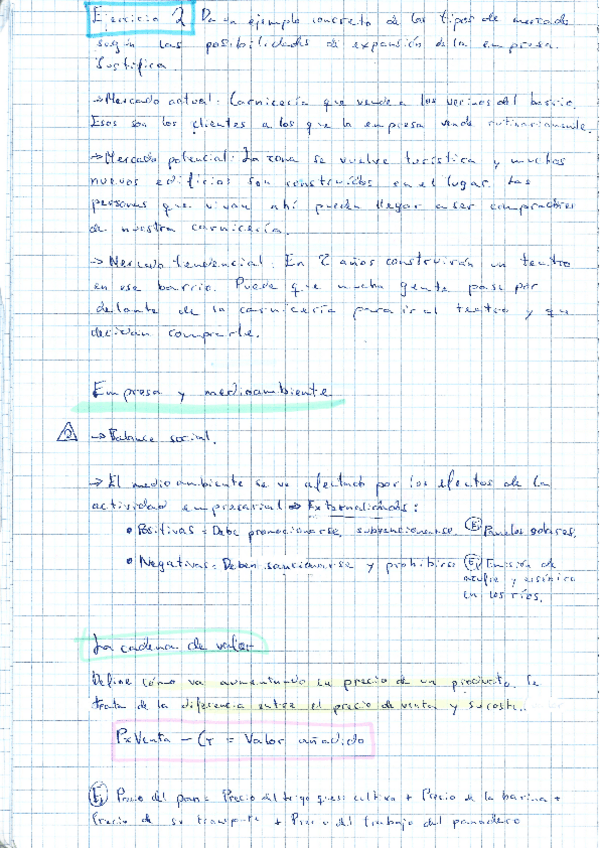 Ejercicio 2 Da un ejemplo concreto de los tipos de mercado
según las posibilidades de expansión de la empresa.
Justifica
→ Mercado actual: Carnicería que vende a los vecinos del barrio.
Esos son los clientes a los que la empresa vende rutinariamente.
→ Mercado potencial: La zona se vuelve turística y muchos
nuevos edificios son construidos en el lugar. Las
personas que vivan ahí pueden llegar a ser compradores
de nuestra carnicería.
→ Mercado tendencial: En 2 años construirán un teatro
en ese barrio. Puede que mucha gente pase por
delante de la carnicería para ir al teatro y que
decidan comprarle.
Empresa y medioambiente
→ Balance social.
→ El medio ambiente se ve afectado por los efectos de la
actividad empresarial → Externalidades:
• Positivas = Debe promocionarse, subvencionarse. Ej Paneles solares.
• Negativas = Deben sancionarse y prohibirse Ej Emisión de
azufre y arsénico
en los ríos.
La cadena de valor
Define cómo va aumentando el precio de un producto. Se
trata de la diferencia entre el precio de venta y su coste.
PxVenta - CT = Valor añadido
Ej Precio del pan = Precio del trigo que se cultiva + Precio de la harina +
Precio de su transporte + Precio del trabajo del panadero